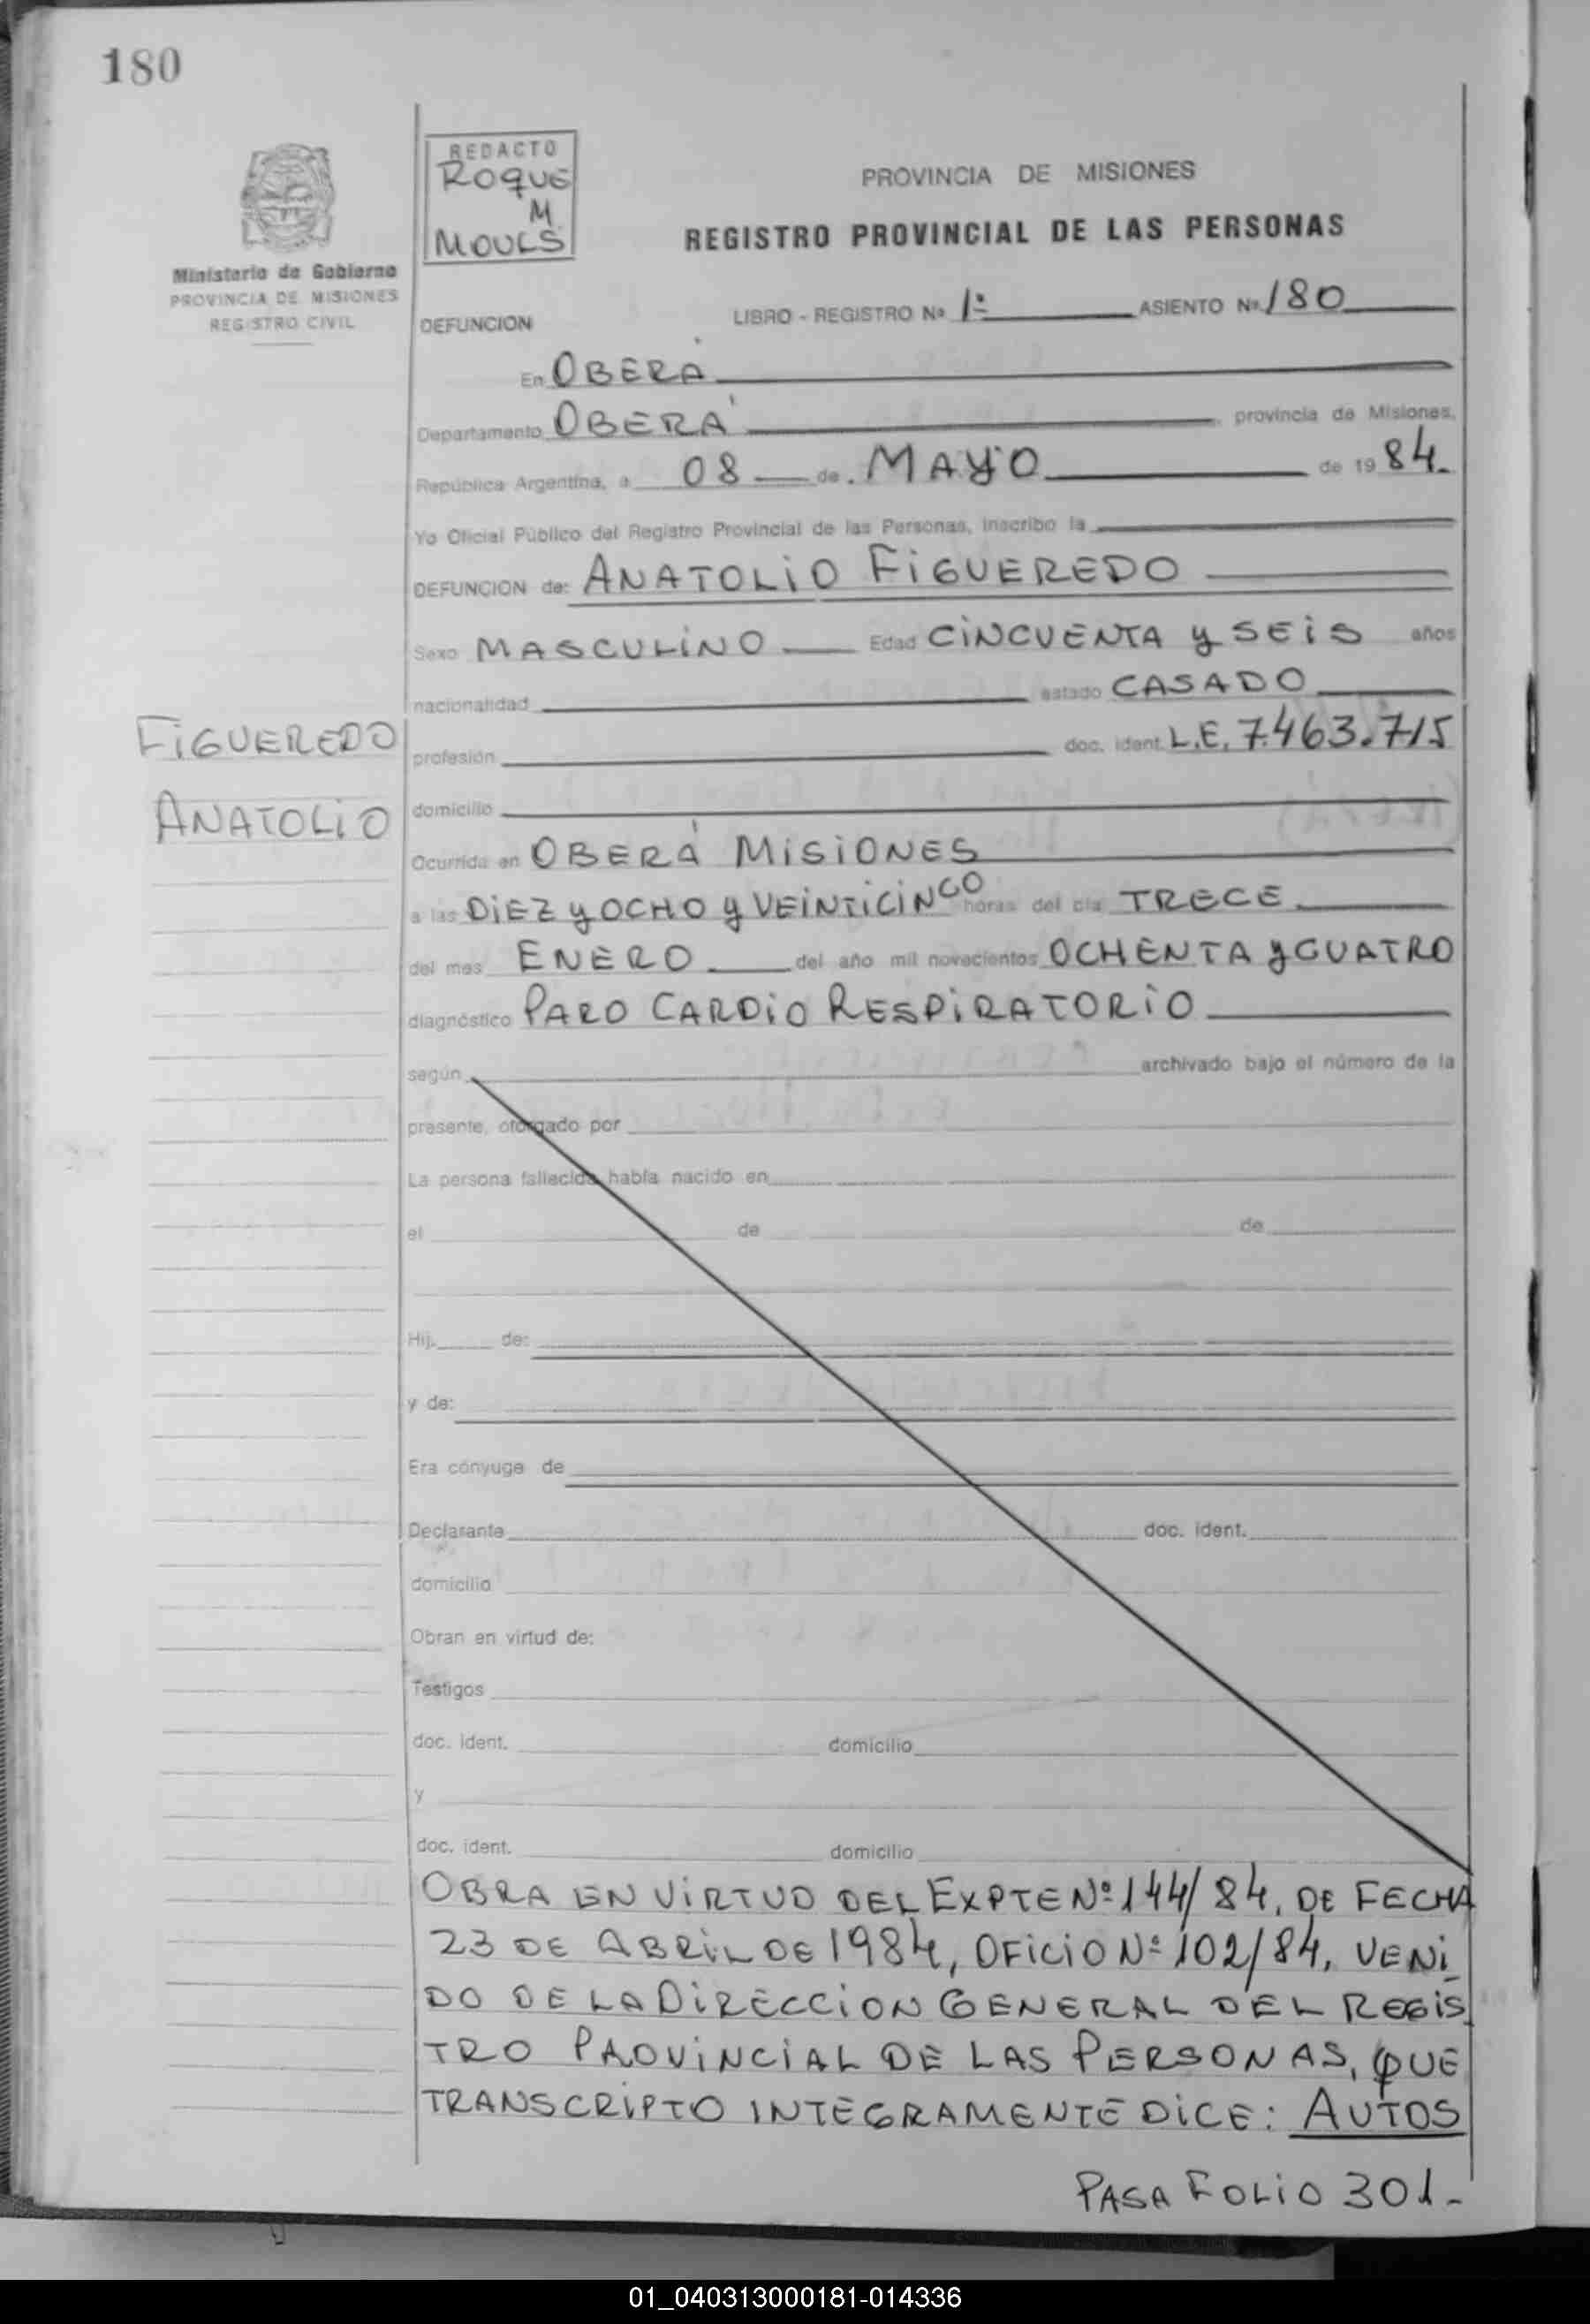 180
REDACTO
ROQUE
M
MOULS
PROVINCIA DE MISIONES
REGISTRO PROVINCIAL DE LAS PERSONAS
Ministerio de Gobierno
PROVINCIA DE MISIONES
REGISTRO CIVIL
DEFUNCION LIBRO - REGISTRO Nº 1º ASIENTO Nº 180
En OBERÁ
Departamento OBERÁ, provincia de Misiones,
República Argentina, a 08 de MAYO de 1984.
Yo Oficial Público del Registro Provincial de las Personas, inscribo la
DEFUNCION de: ANATOLIO FIGUEREDO
Sexo MASCULINO Edad CINCUENTA y SEIS años
nacionalidad estado CASADO
FIGUEREDO
ANATOLIO
profesión doc. ident. L.E. 7.463.715
domicilio
Ocurrida en OBERÁ MISIONES
a las DIEZ y OCHO y VEINTICINCO horas del día TRECE
del mes ENERO del año mil novecientos OCHENTA y CUATRO
diagnóstico PARO CARDIO RESPIRATORIO
según archivado bajo el número de la
presente, otorgado por
La persona fallecida había nacido en
el de de
Hij de:
y de:
Era cónyuge de
Declarante doc. ident.
domicilio
Obran en virtud de:
Testigos
doc. ident. domicilio
y
doc. ident. domicilio
OBRA EN VIRTUD DEL EXPTE Nº 144/84, DE FECHA
23 DE ABRIL DE 1984, OFICIO Nº 102/84, VENI_
DO DE LA DIRECCION GENERAL DEL REGIS_
TRO PROVINCIAL DE LAS PERSONAS, QUE
TRANSCRIPTO INTEGRAMENTE DICE: AUTOS
PASA FOLIO 301.-
01_040313000181-014336